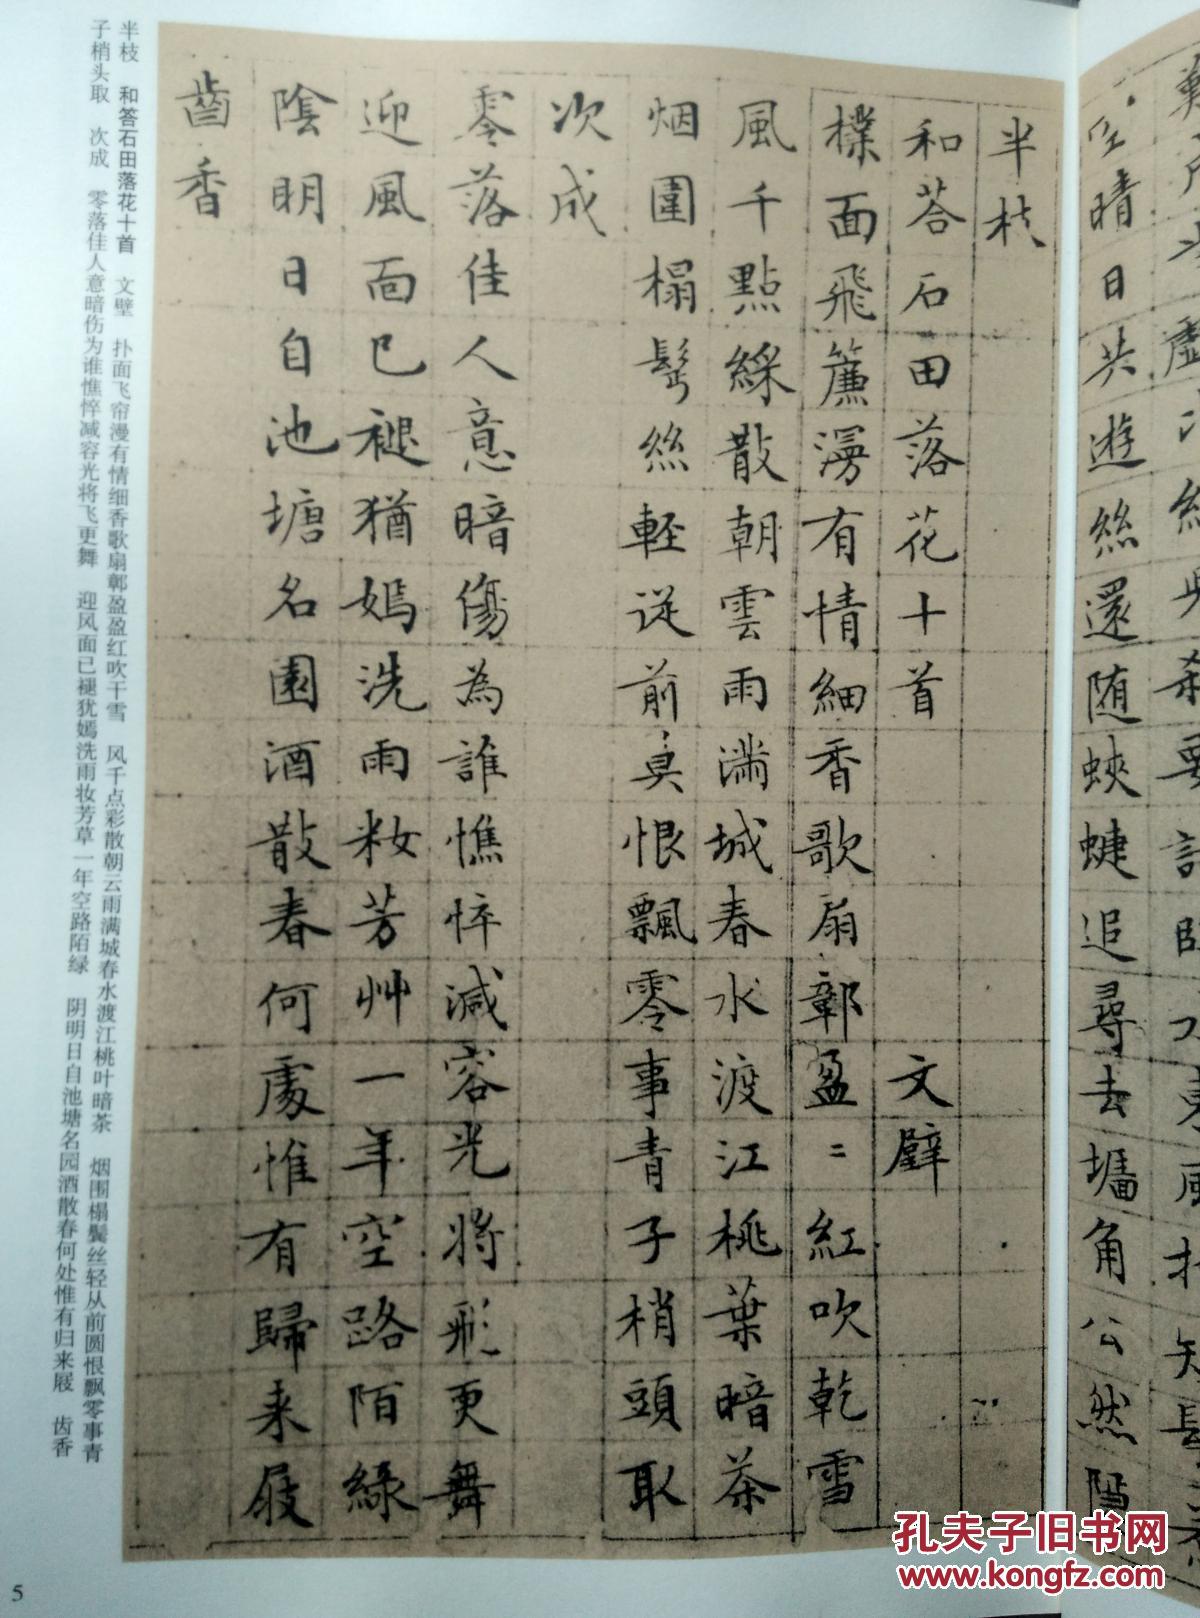 空晴日共遊絲還随蛺蜨追尋去墻角公然隔
半枝
和荅石田落花十首 文璧
撲面飛簾漫有情細香歌扇鄣盈〻紅吹乾雪
風千點綵散朝雲雨满城春水渡江桃葉暗茶
烟圍榻鬂絲軽從前莫恨飄零事青子梢頭取
次成
零落佳人意暗傷為誰憔悴減容光將飛更舞
迎風面已褪猶嫣洗雨妝芳艸一年空路陌綠
陰明日自池塘名園酒散春何處惟有歸来屐
齒香
半枝 和答石田落花十首 文壁 扑面飞帘漫有情细香歌扇鄣盈盈红吹干雪 风千点彩散朝云雨满城春水渡江桃叶暗茶 烟围榻鬓丝轻从前圆恨飘零事青
子梢头取 次成 零落佳人意暗伤为谁憔悴减容光将飞更舞 迎风面已褪犹嫣洗雨妆芳草一年空路陌绿 阴明日自池塘名园酒散春何处惟有归来屐 齿香
5
孔夫子旧书网
www.kongfz.com